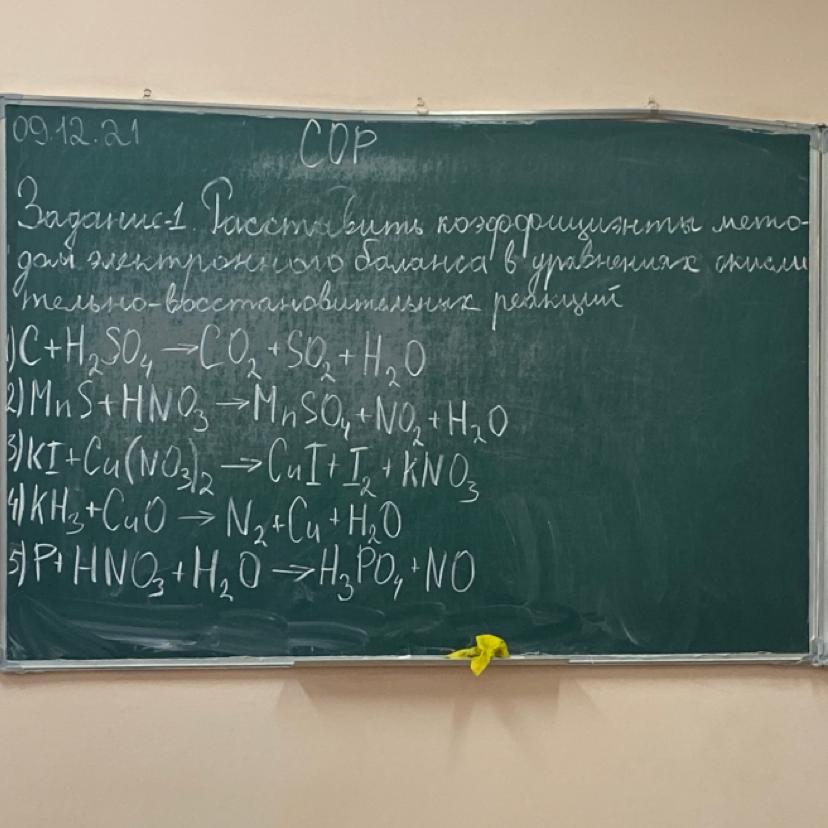 09.12.21
СОР
Задание-1. Расставить коэффициэнты мето-
дом электронного баланса в уравнениях окисли
тельно-восстановительных реакций
1) C + H₂SO₄ → CO₂ + SO₂ + H₂O
2) MnS + HNO₃ → MnSO₄ + NO₂ + H₂O
3) KI + Cu(NO₃)₂ → CuI + I₂ + KNO₃
4) KH₃ + CuO → N₂ + Cu + H₂O
5) P + HNO₃ + H₂O → H₃PO₄ + NO